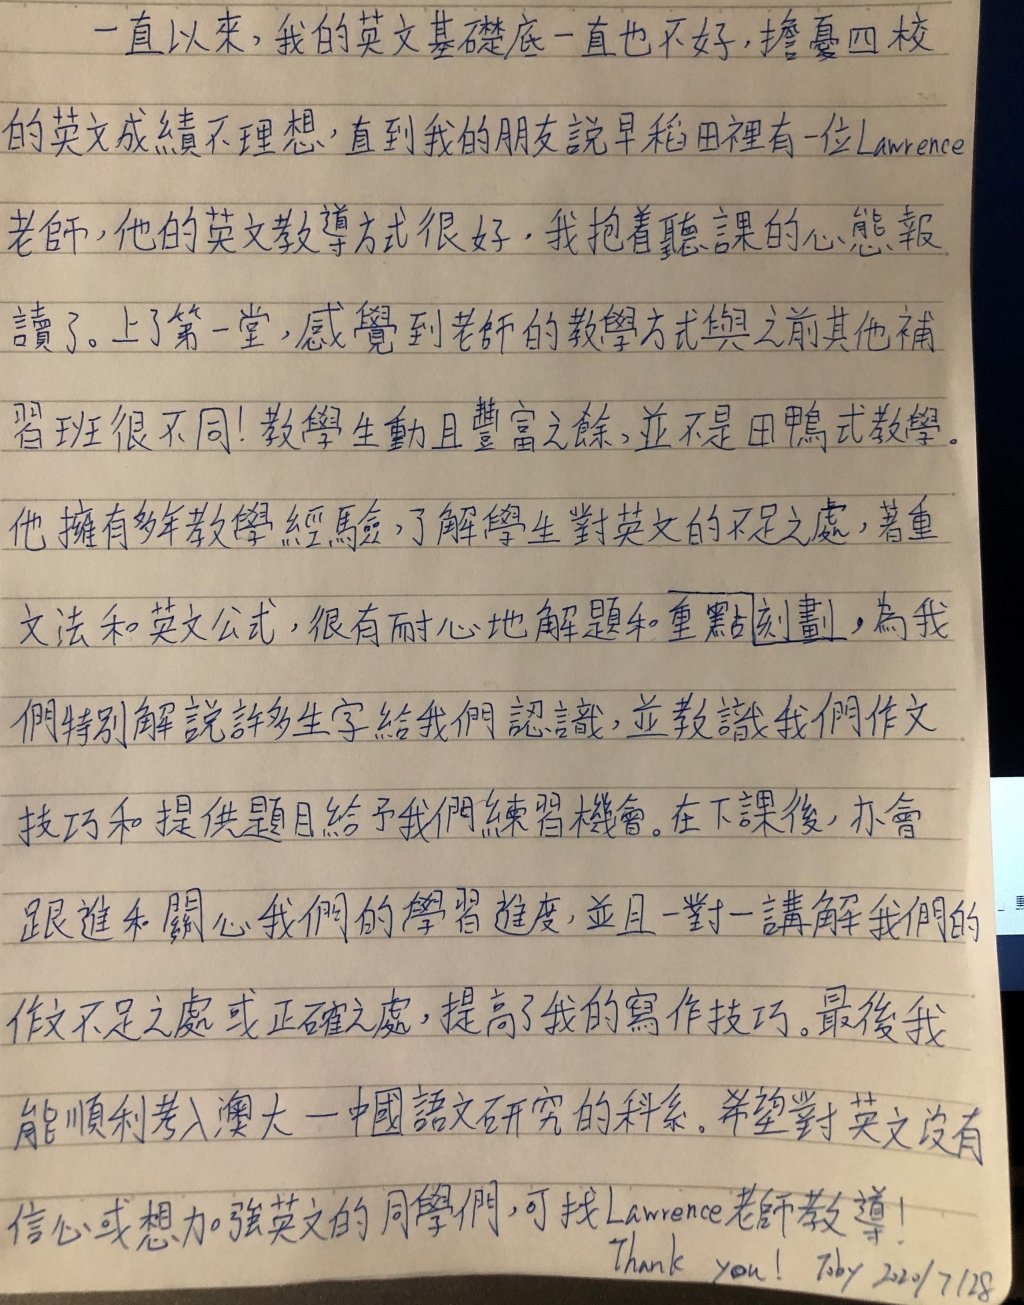 一直以來，我的英文基礎底一直也不好，擔憂四校
的英文成績不理想，直到我的朋友說早稻田裡有一位Lawrence
老師，他的英文教導方式很好，我抱着聽課的心態報
讀了。上了第一堂，感覺到老師的教學方式與之前其他補
習班很不同！教學生動且豐富之餘，並不是田鴨式教學。
他擁有多年教學經驗，了解學生對英文的不足之處，著重
文法和英文公式，很有耐心地解題和重點刻劃，為我
們特別解說許多生字給我們認識，並教識我們作文
技巧和提供題目給予我們練習機會。在下課後，亦會
跟進和關心我們的學習進度，並且一對一講解我們的
作文不足之處或正確之處，提高了我的寫作技巧。最後我
能順利考入澳大－中國語文研究的科系。希望對英文沒有
信心或想加強英文的同學們，可找Lawrence老師教導！
Thank you! Toby 2020/7/28